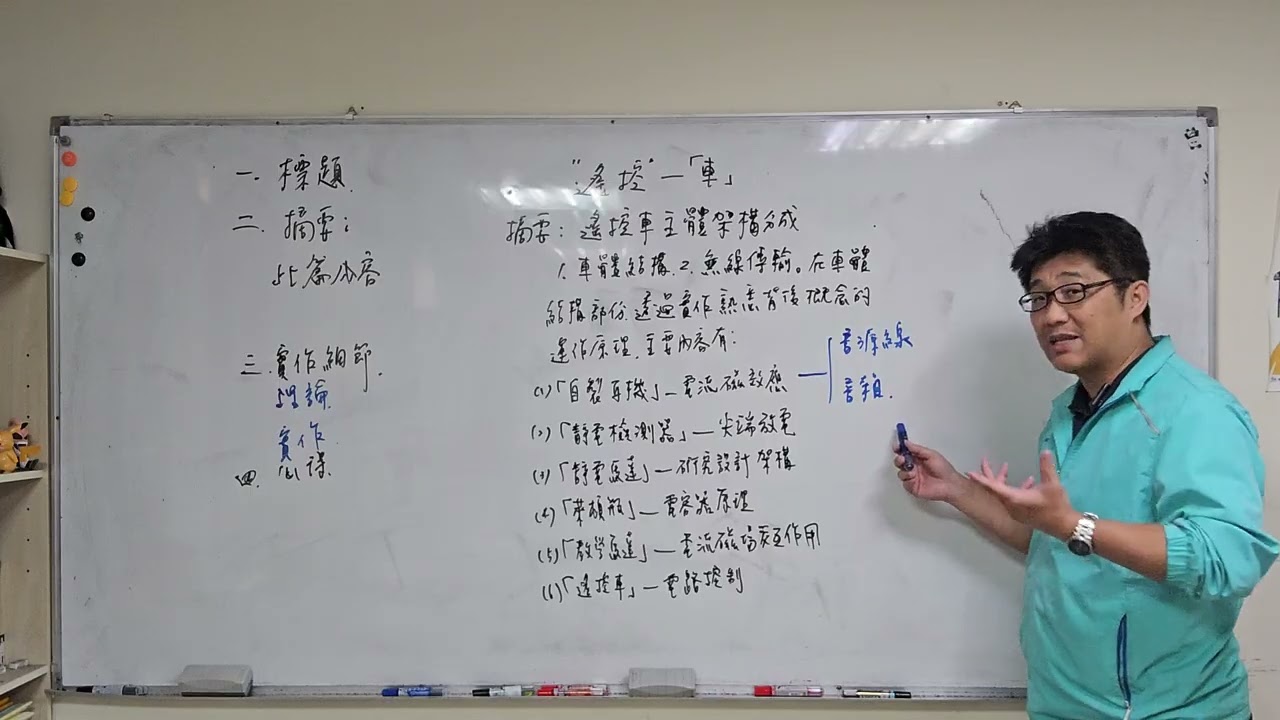 一. 標題
二. 摘要:
此篇內容
三. 實作細節.
理論
實作
四. 心得
"遙控"—「車」
摘要: 遙控車主體架構分成
1. 車體結構. 2. 無線傳輸。在車體
結構部份, 透過實作熟悉背後概念的
運作原理, 主要內容有:
(1)「自製耳機」— 電流磁效應
音源線
音頻.
(2)「靜電檢測器」— 尖端放電
(3)「靜電馬達」— 研究設計架構
(4)「萊頓瓶」— 電容器原理
(5)「教學馬達」— 電流磁場交互作用
(6)「遙控車」— 電路控制